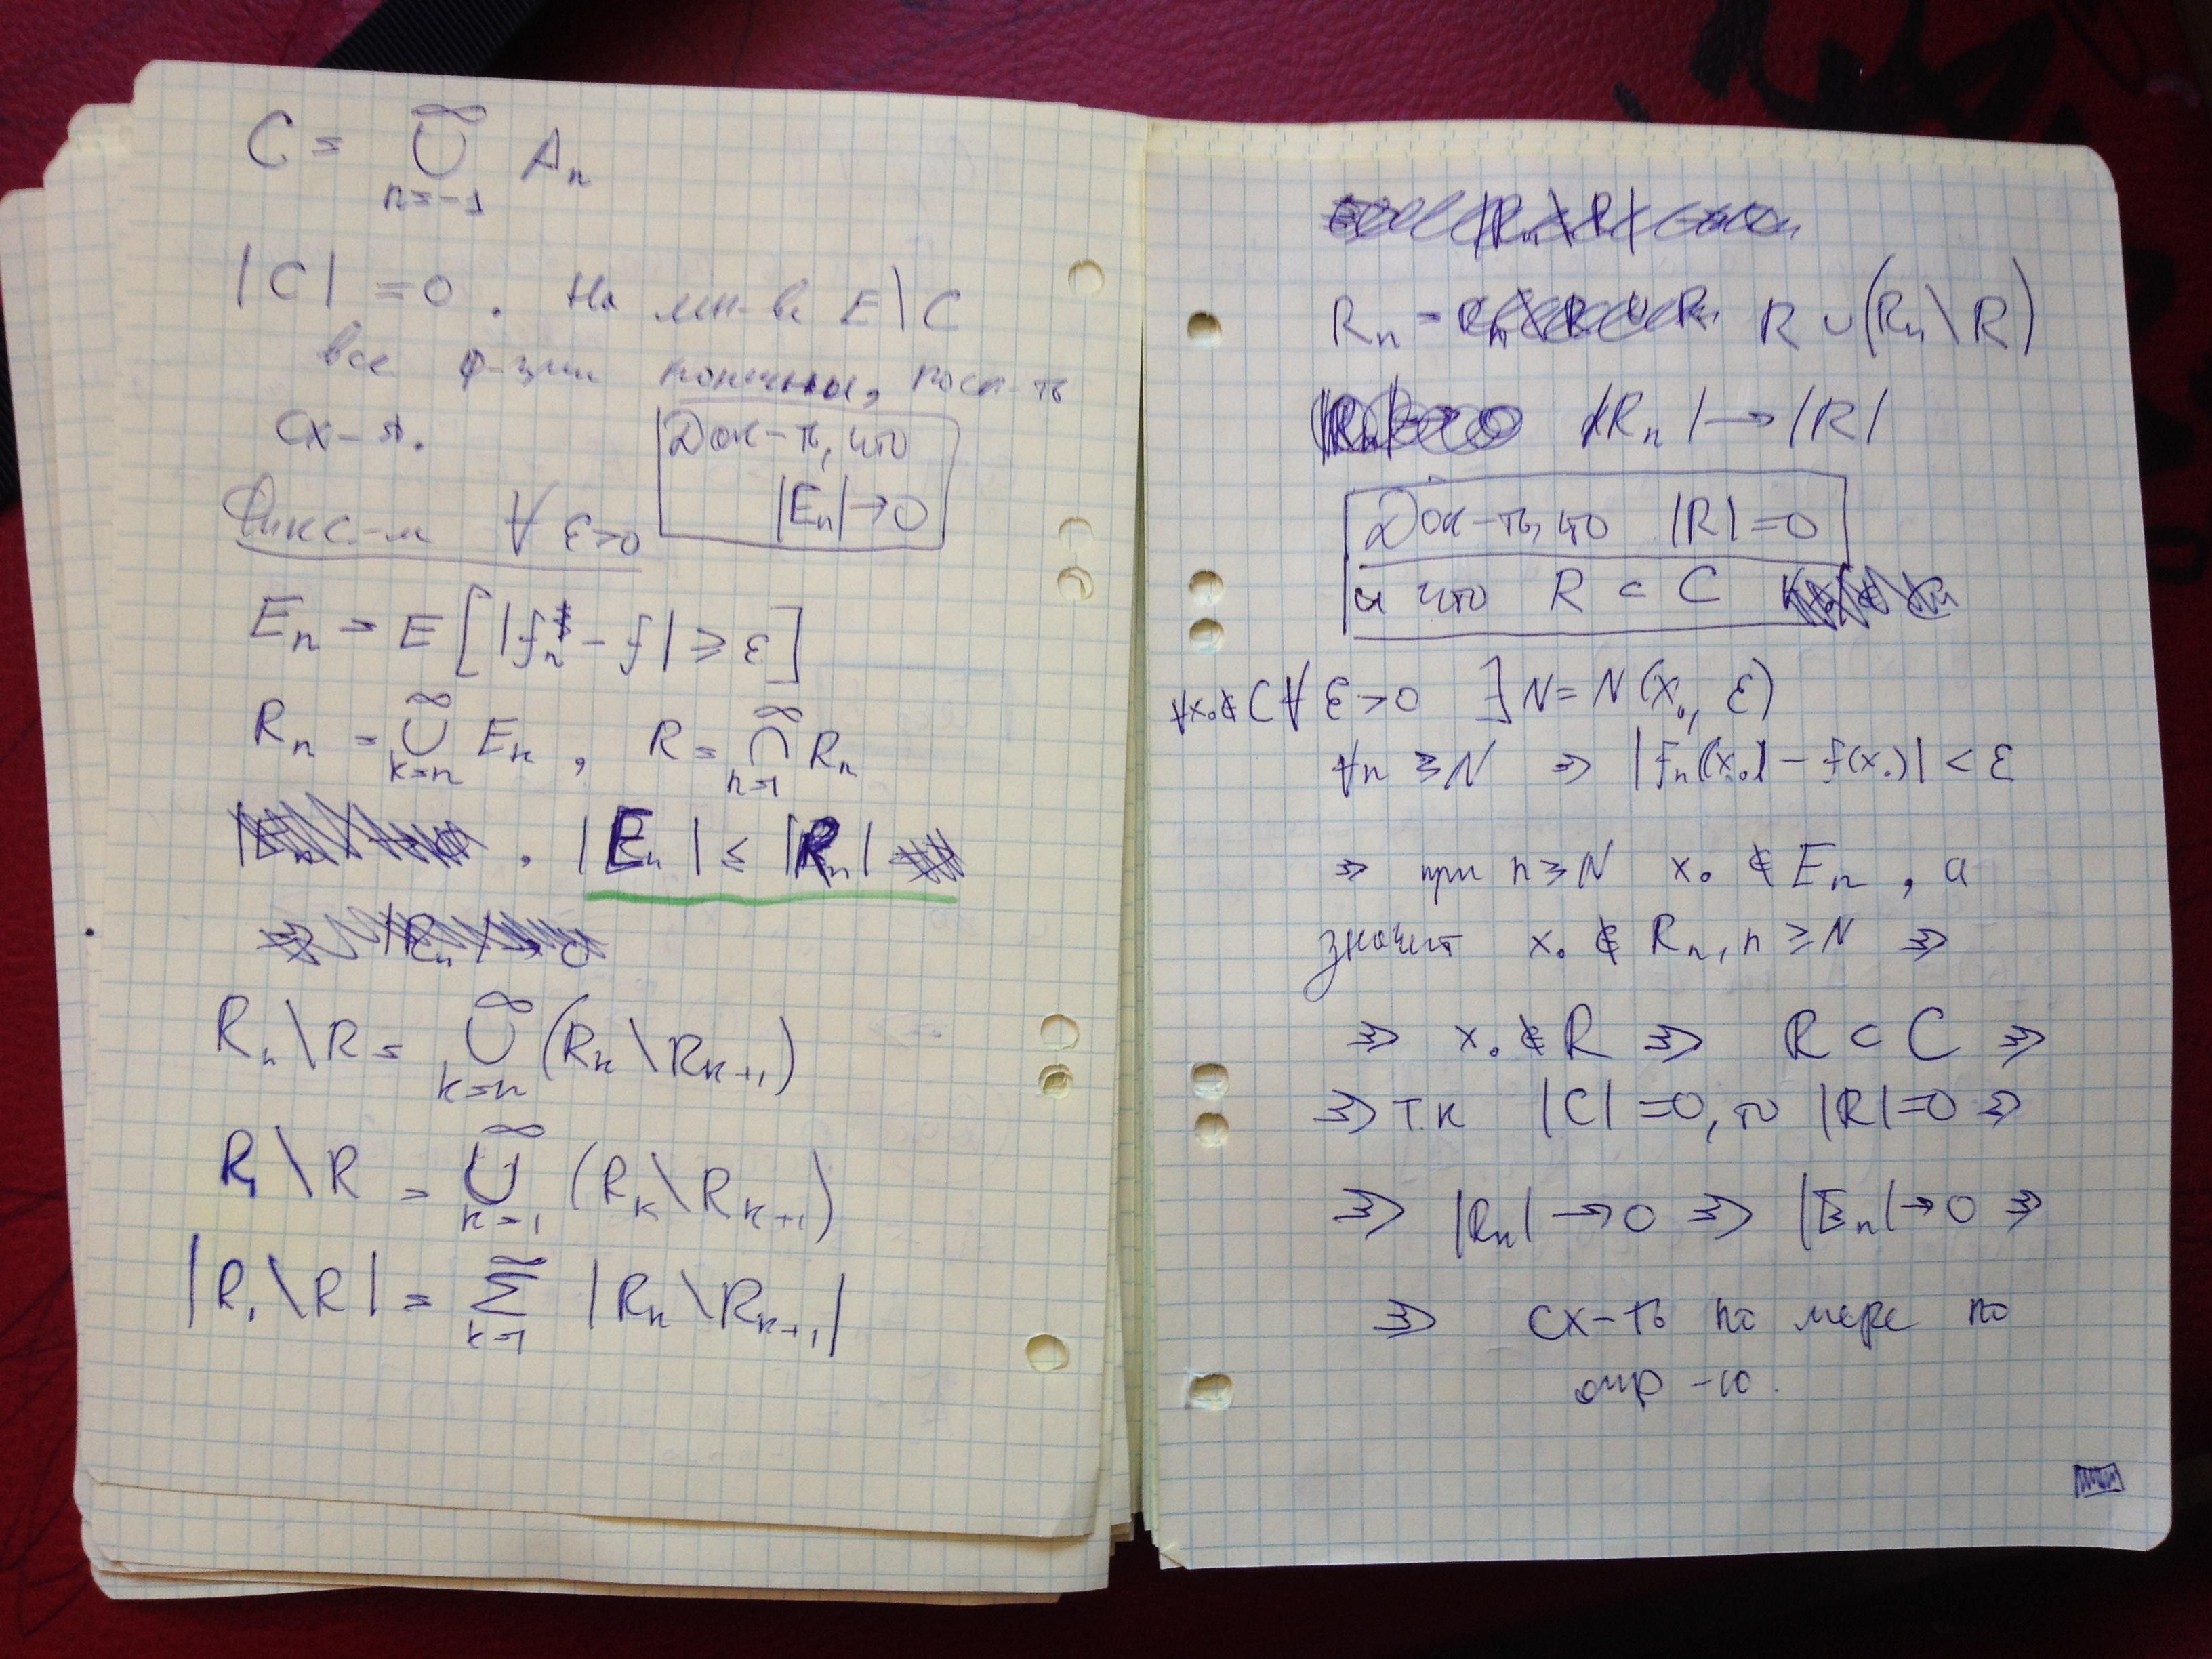 C = ∞⋃n=-1 Aₙ
|C| = 0. На мн-ве E\C
все ф-ции конечны, посл-ть
сх-я.
Док-ть, что
|Eₙ| → 0
Фикс-м ∀ ε>0
Eₙ = E[|fₙ - f| ≥ ε]
Rₙ = ∞⋃k=n Eₖ, R = ∞⋂n=1 Rₙ
, |Eₙ| ≤ |Rₙ|
Rₙ\R = ∞⋃k=n (Rₖ\Rₖ₊₁)
R₁\R = ∞⋃k=1 (Rₖ\Rₖ₊₁)
|R₁\R| = ∞∑k=1 |Rₖ\Rₖ₊₁|
Rₙ = R ∪ (Rₙ\R)
|Rₙ| → |R|
Док-ть, что |R| = 0
и что R ⊂ C
∀x₀∉C ∀ ε>0 ∃ N = N(x₀, ε)
∀n ≥ N ⇒ |fₙ(x₀) - f(x₀)| < ε
⇒ при n ≥ N x₀ ∉ Eₙ, а
значит x₀ ∉ Rₙ, n ≥ N ⇒
⇒ x₀ ∉ R ⇒ R ⊂ C ⇒
⇒ т.к |C| = 0, то |R| = 0 ⇒
⇒ |Rₙ| → 0 ⇒ |Eₙ| → 0 ⇒
⇒ сх-ть по мере по
опр-ю.